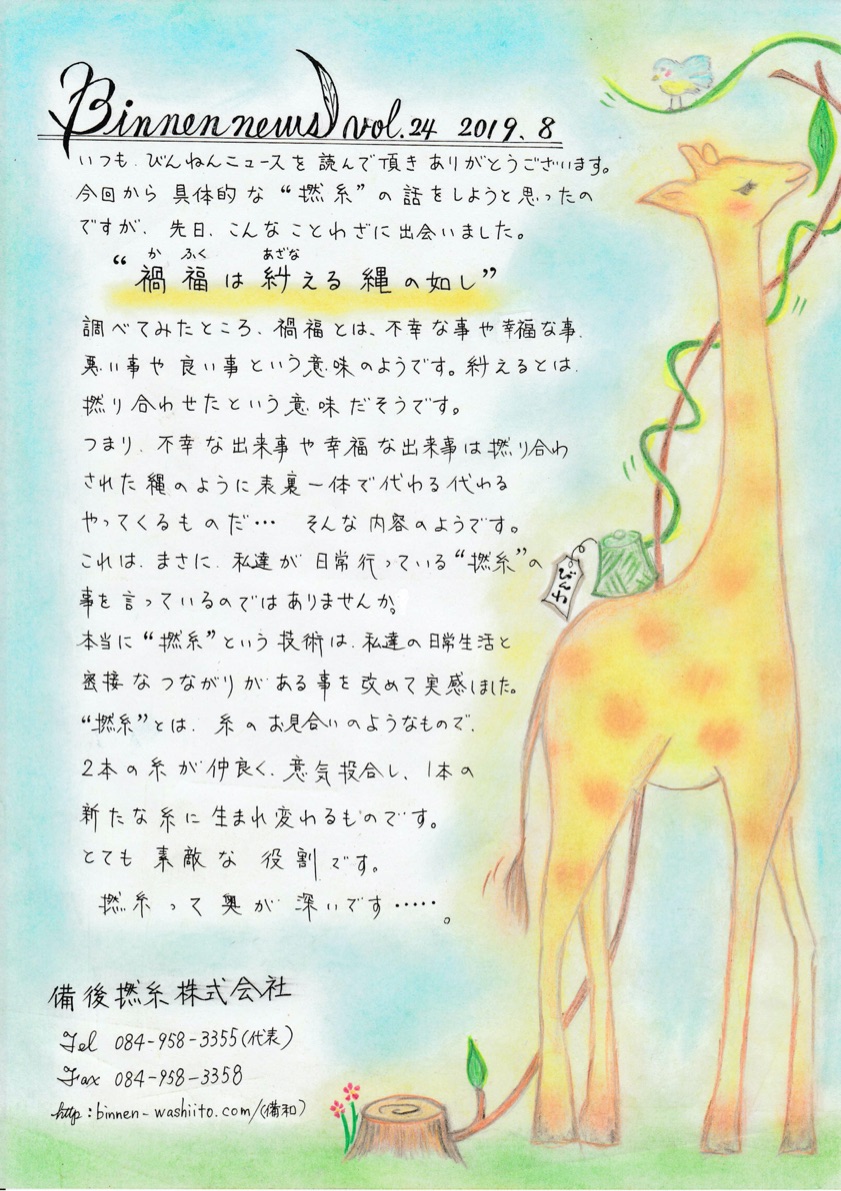 Binnen news vol.24 2019.8
いつも、びんねんニュースを読んで頂きありがとうございます。
今回から具体的な“撚糸”の話をしようと思ったの
ですが、先日、こんなことわざに出会いました。
か ふく あざな
“禍福は糾える縄の如し”
調べてみたところ、禍福とは、不幸な事や幸福な事、
悪い事や良い事という意味のようです。糾えるとは、
撚り合わせたという意味だそうです。
つまり、不幸な出来事や幸福な出来事は撚り合わ
された縄のように表裏一体で代わる代わる
やってくるものだ… そんな内容のようです。
これは、まさに、私達が日常行っている“撚糸”の
事を言っているのではありませんか。
本当に“撚糸”という技術は、私達の日常生活と
密接なつながりがある事を改めて実感しました。
“撚糸”とは、糸のお見合いのようなもので、
2本の糸が仲良く、意気投合し、1本の
新たな糸に生まれ変わるものです。
とても素敵な役割です。
撚糸って奥が深いです……。
びんわ
備後撚糸株式会社
Tel 084-958-3355(代表)
Fax 084-958-3358
http:binnen-washiito.com/(備和)